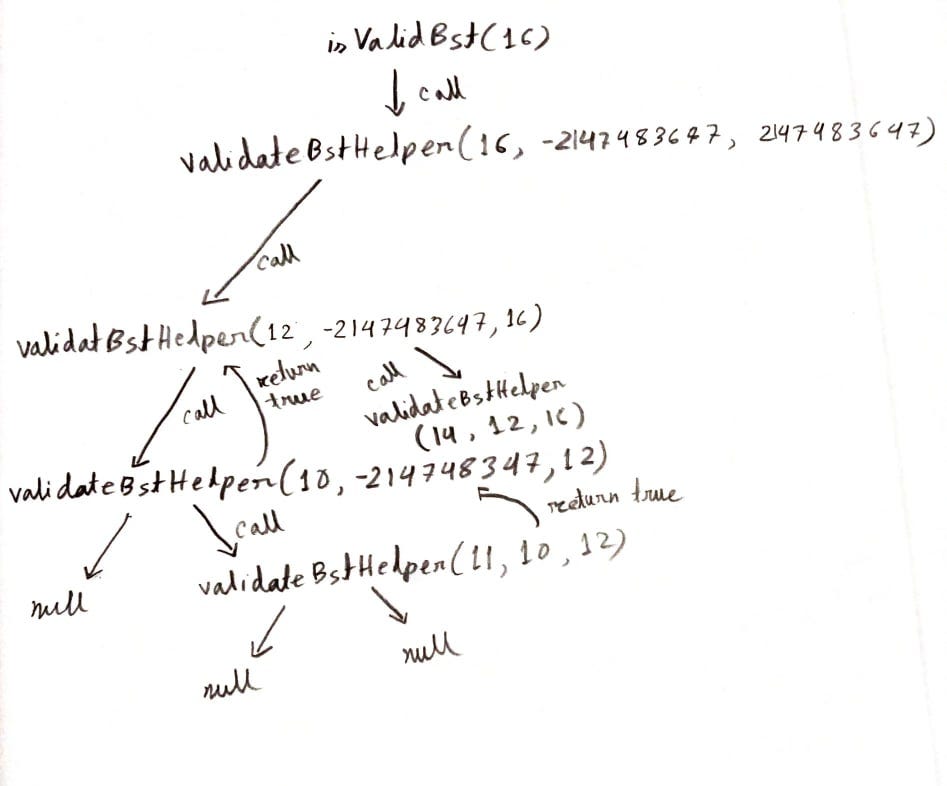 isValidBst(16)
call
validateBstHelper(16, -2147483647, 2147483647)
call
validatBstHelper(12, -2147483647, 16)
call
return
true
call
validateBstHelper
(14, 12, 16)
validateBstHelper(10, -214748347, 12)
return true
call
validateBstHelper(11, 10, 12)
null
null
null